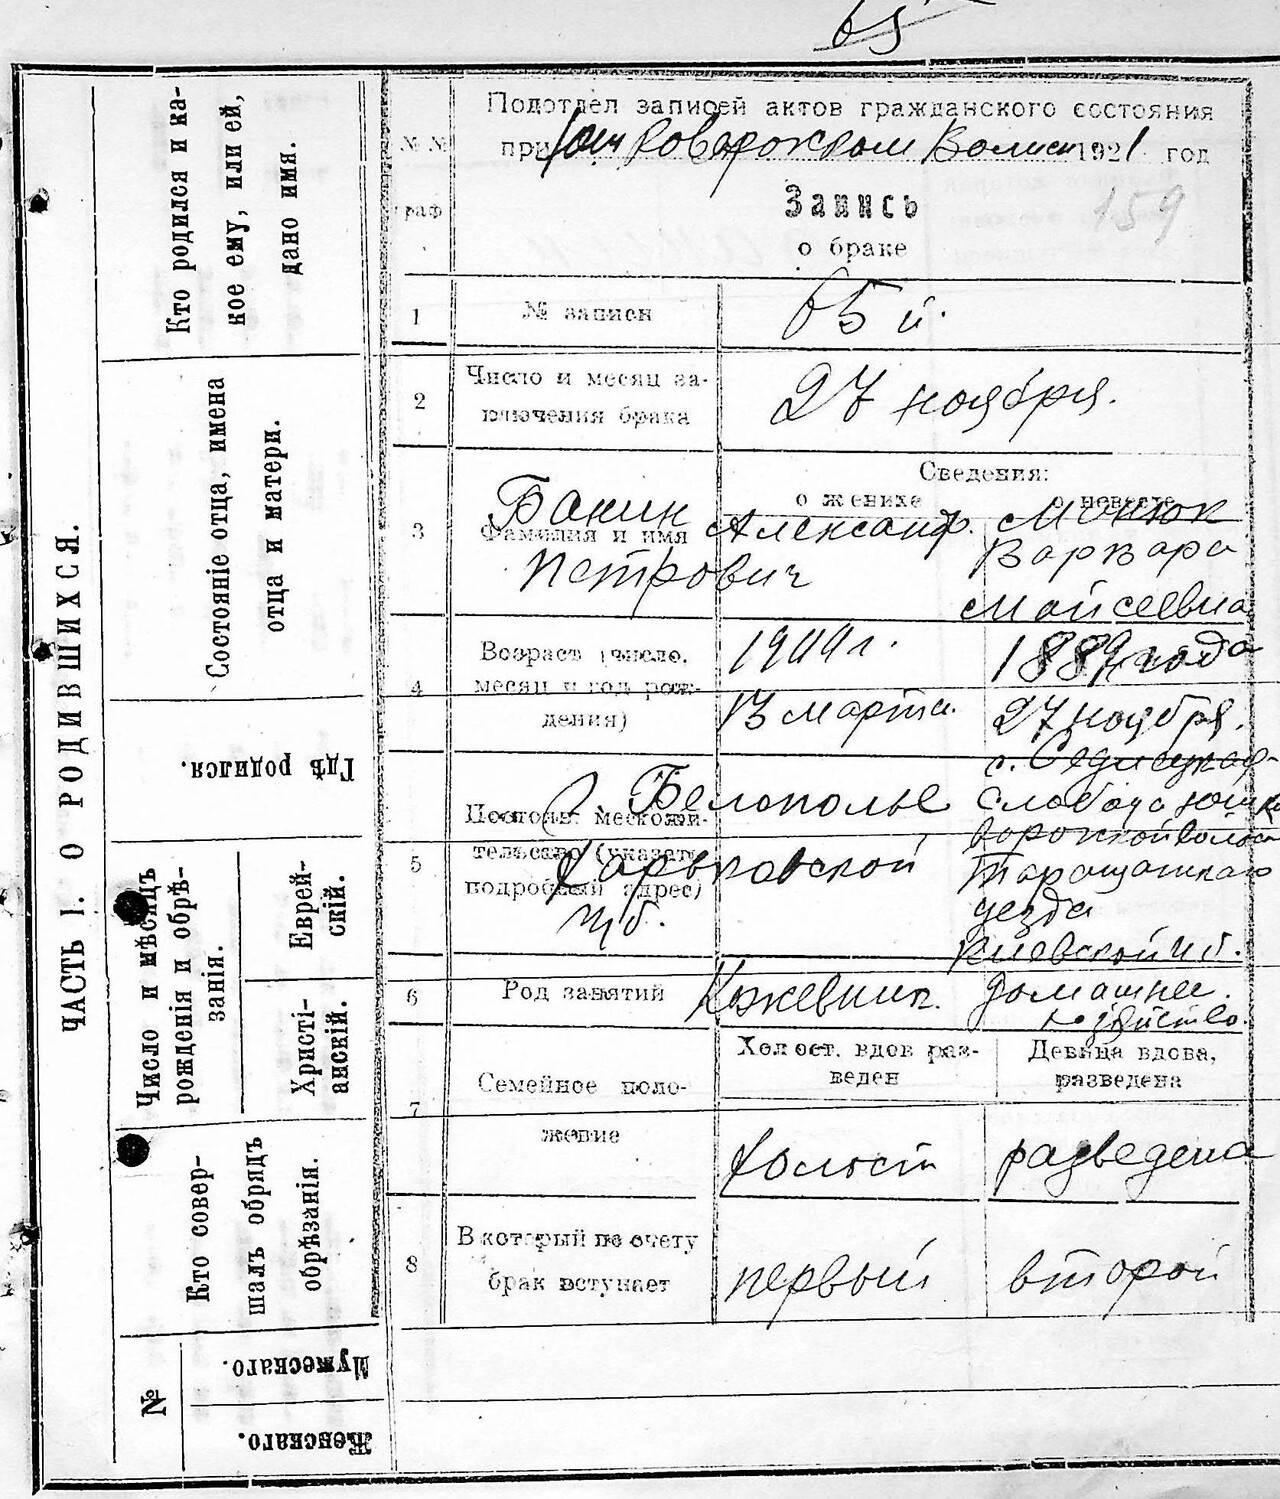 65
Подотдел записей актов гражданского состояния
при 1921 год
№№ граф
Запись
159
о браке
1
№ записи
65 й.
2
Число и месяц за-
ключения брака
27 ноября.
Сведения:
о женихе
о невесте
3
Фамилия и имя
Банин Александр.
Петрович
Монюк
Варвара
Мойсеевна
4
Возраст (число,
месяц и год рож-
дения)
13 марта.
1889 года
27 ноября.
5
Постоян. местожи-
тельство (указать
подробный адрес)
Белополье
Харьковской
губ.
с.
Слобода
Таращанского
уезда
Киевской губ.
6
Род занятий
Кожевник.
домашнее
хозяйство.
7
Семейное поло-
жение
Холост. вдов раз-
веден
Девица вдова,
разведена
холост
разведена
8
В который по счету
брак вступает
первый
второй
ЧАСТЬ I. О РОДИВШИХСЯ.
Кто родился и ка-
кое ему, или ей,
дано имя.
Состояніе отца, имена
отца и матери.
Гдѣ родился.
Число и мѣсяцъ
рожденія и обрѣ-
занія.
Еврей-
скій.
Христі-
анскій.
Кто совер-
шалъ обрядъ
обрѣзанія.
№
Мужескаго.
Женскаго.